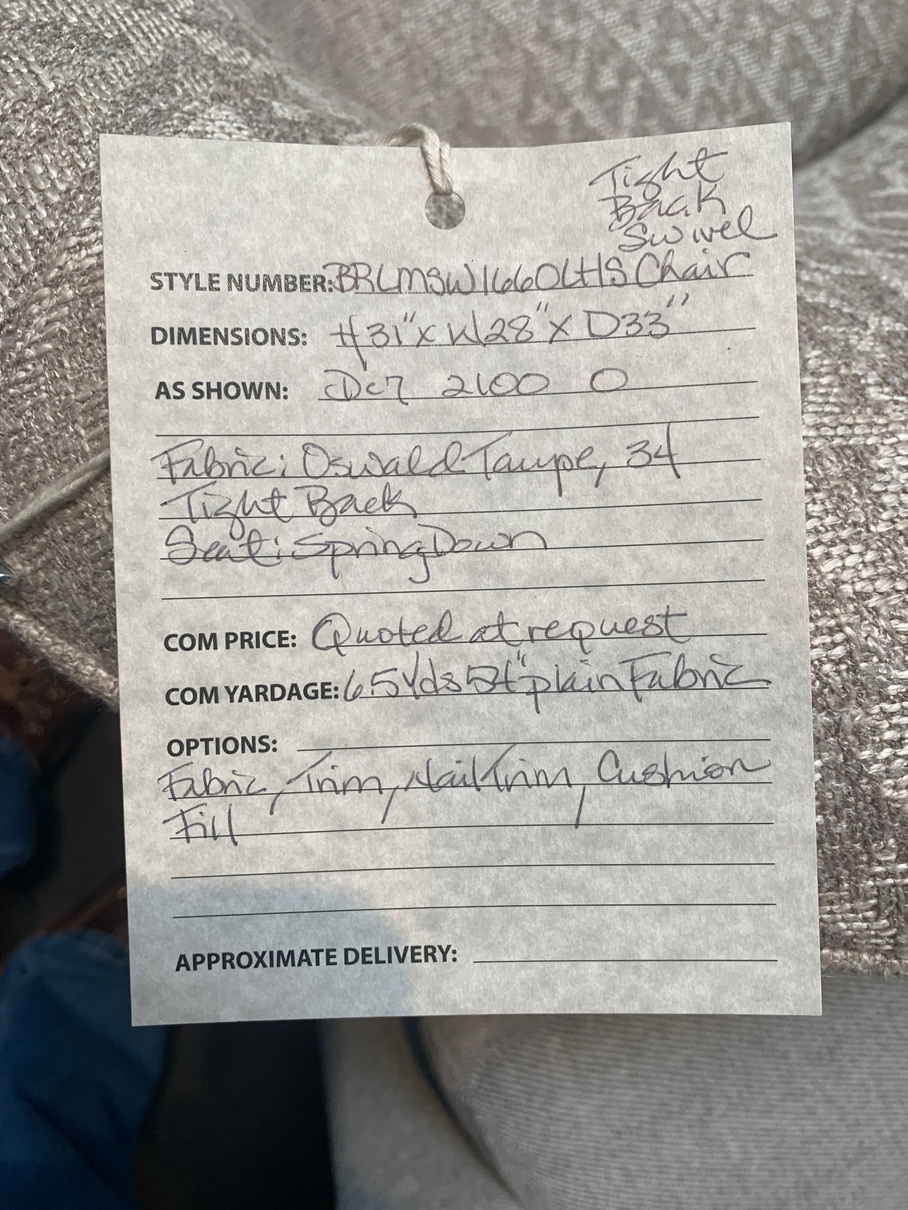 Tight
Back
Swivel
STYLE NUMBER: BRLMSW1660LHS Chair
DIMENSIONS: H31" x W28" x D33"
AS SHOWN: 2100 0
Fabric: Oswald Taupe, 34
Tight Back
Seat: Spring Down
COM PRICE: Quoted at request
COM YARDAGE: 6.5 Yds 54" plain Fabric
OPTIONS:
Fabric, Trim, Nail Trim, Cushion
Fill
APPROXIMATE DELIVERY: